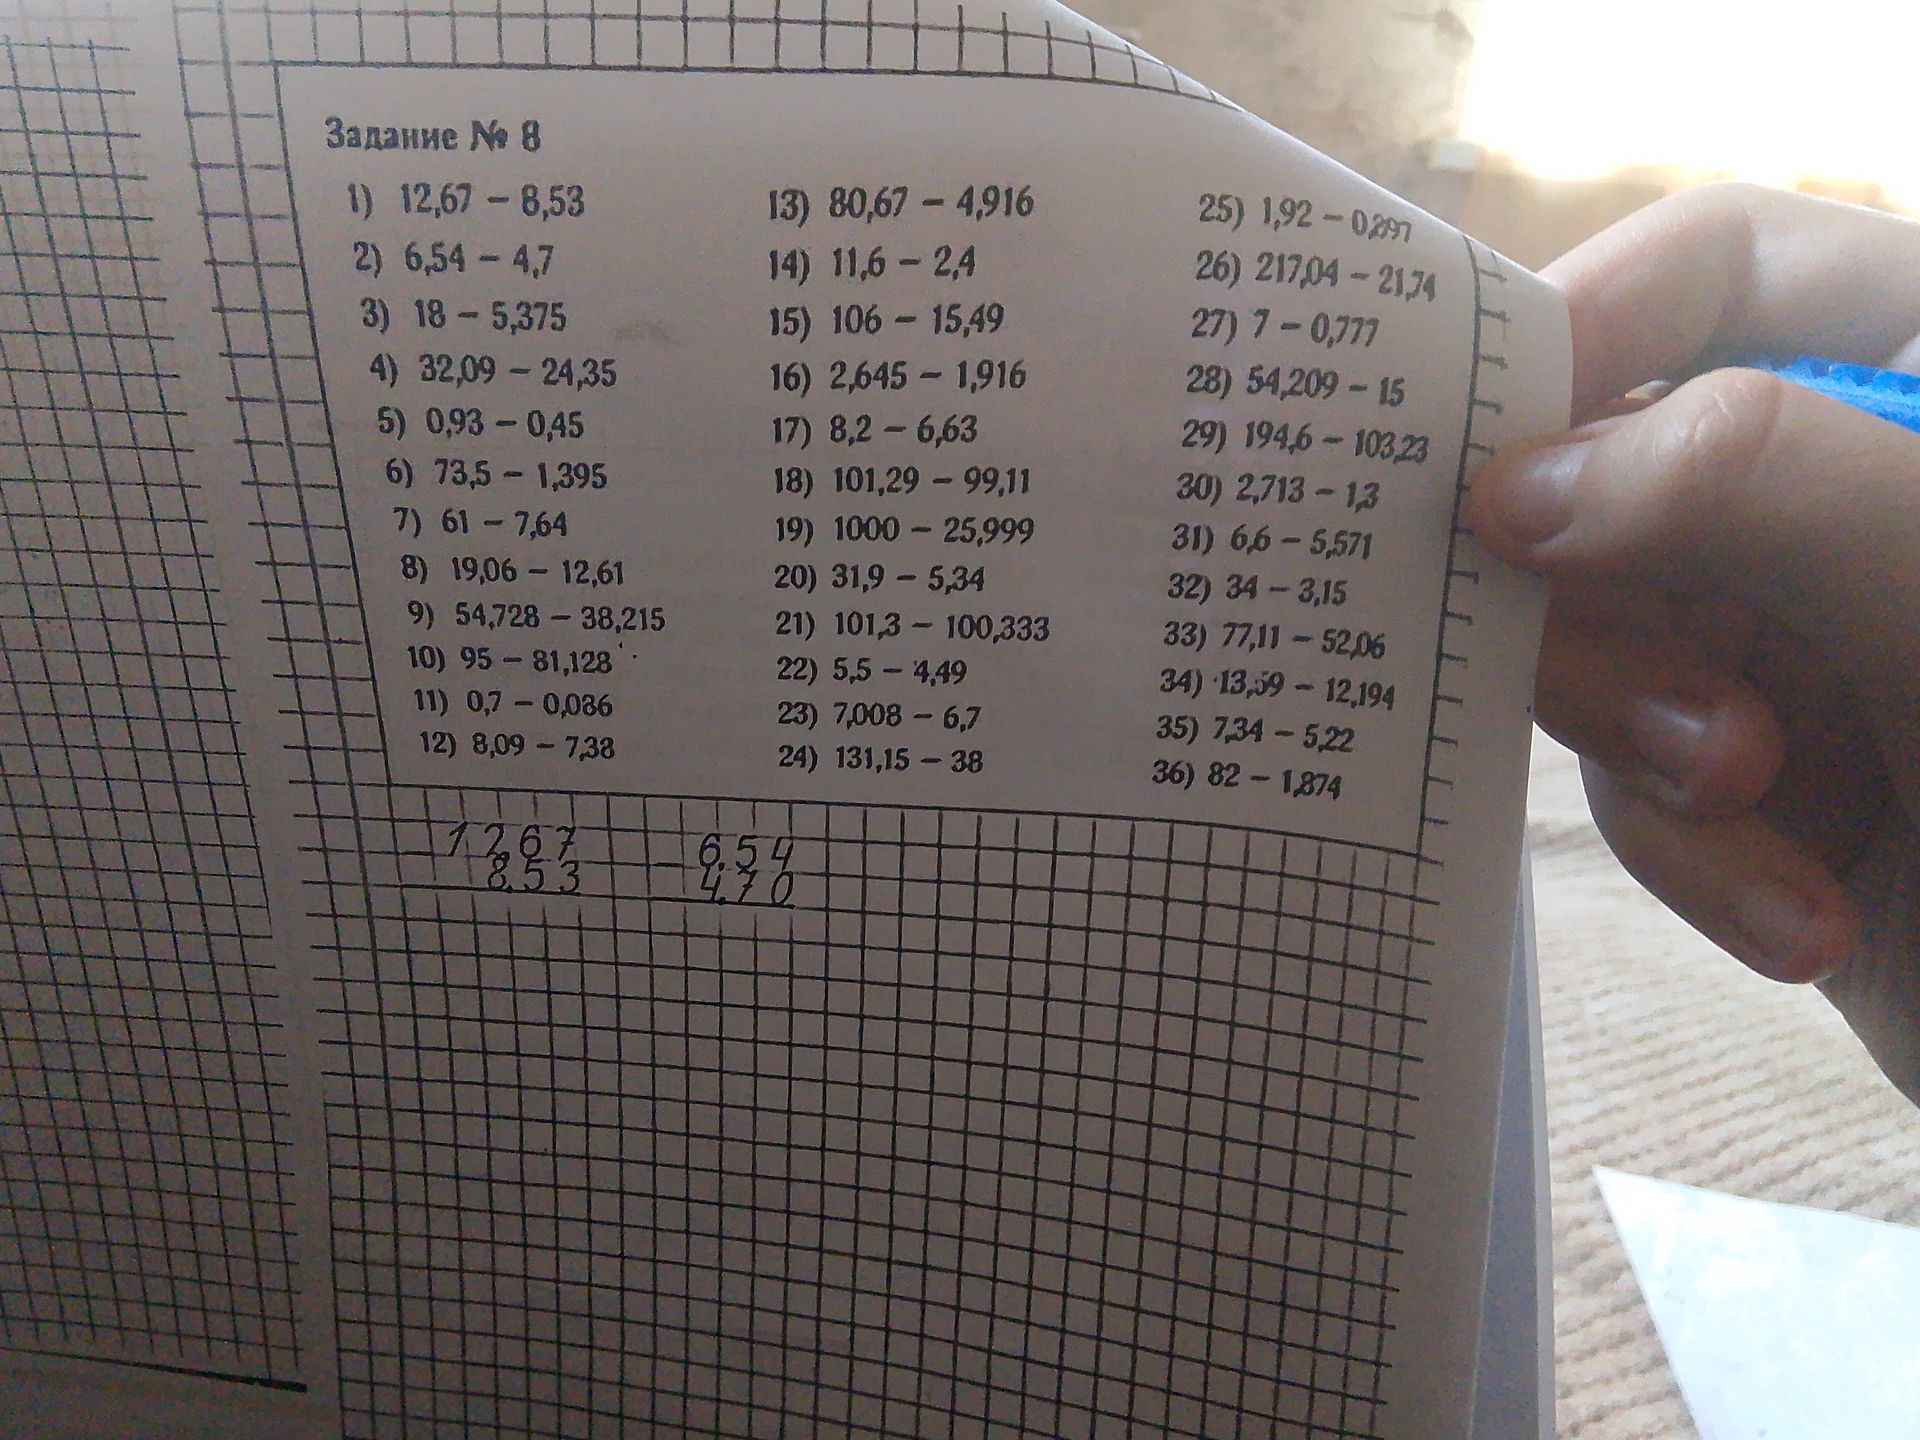 Задание № 8
1) 12,67 – 8,53
2) 6,54 – 4,7
3) 18 – 5,375
4) 32,09 – 24,35
5) 0,93 – 0,45
6) 73,5 – 1,395
7) 61 – 7,64
8) 19,06 – 12,61
9) 54,728 – 38,215
10) 95 – 81,128
11) 0,7 – 0,086
12) 8,09 – 7,38
13) 80,67 – 4,916
14) 11,6 – 2,4
15) 106 – 15,49
16) 2,645 – 1,916
17) 8,2 – 6,63
18) 101,29 – 99,11
19) 1000 – 25,999
20) 31,9 – 5,34
21) 101,3 – 100,333
22) 5,5 – 4,49
23) 7,008 – 6,7
24) 131,15 – 38
25) 1,92 –
26) 217,04 – 21,74
27) 7 – 0,777
28) 54,209 – 15
29) 194,6 – 103,23
30) 2,713 – 1,3
31) 6,6 – 5,571
32) 34 – 3,15
33) 77,11 – 52,06
34) 13,59 – 12,194
35) 7,34 – 5,22
36) 82 – 1,874
12,67
8,53
6,54
4,70